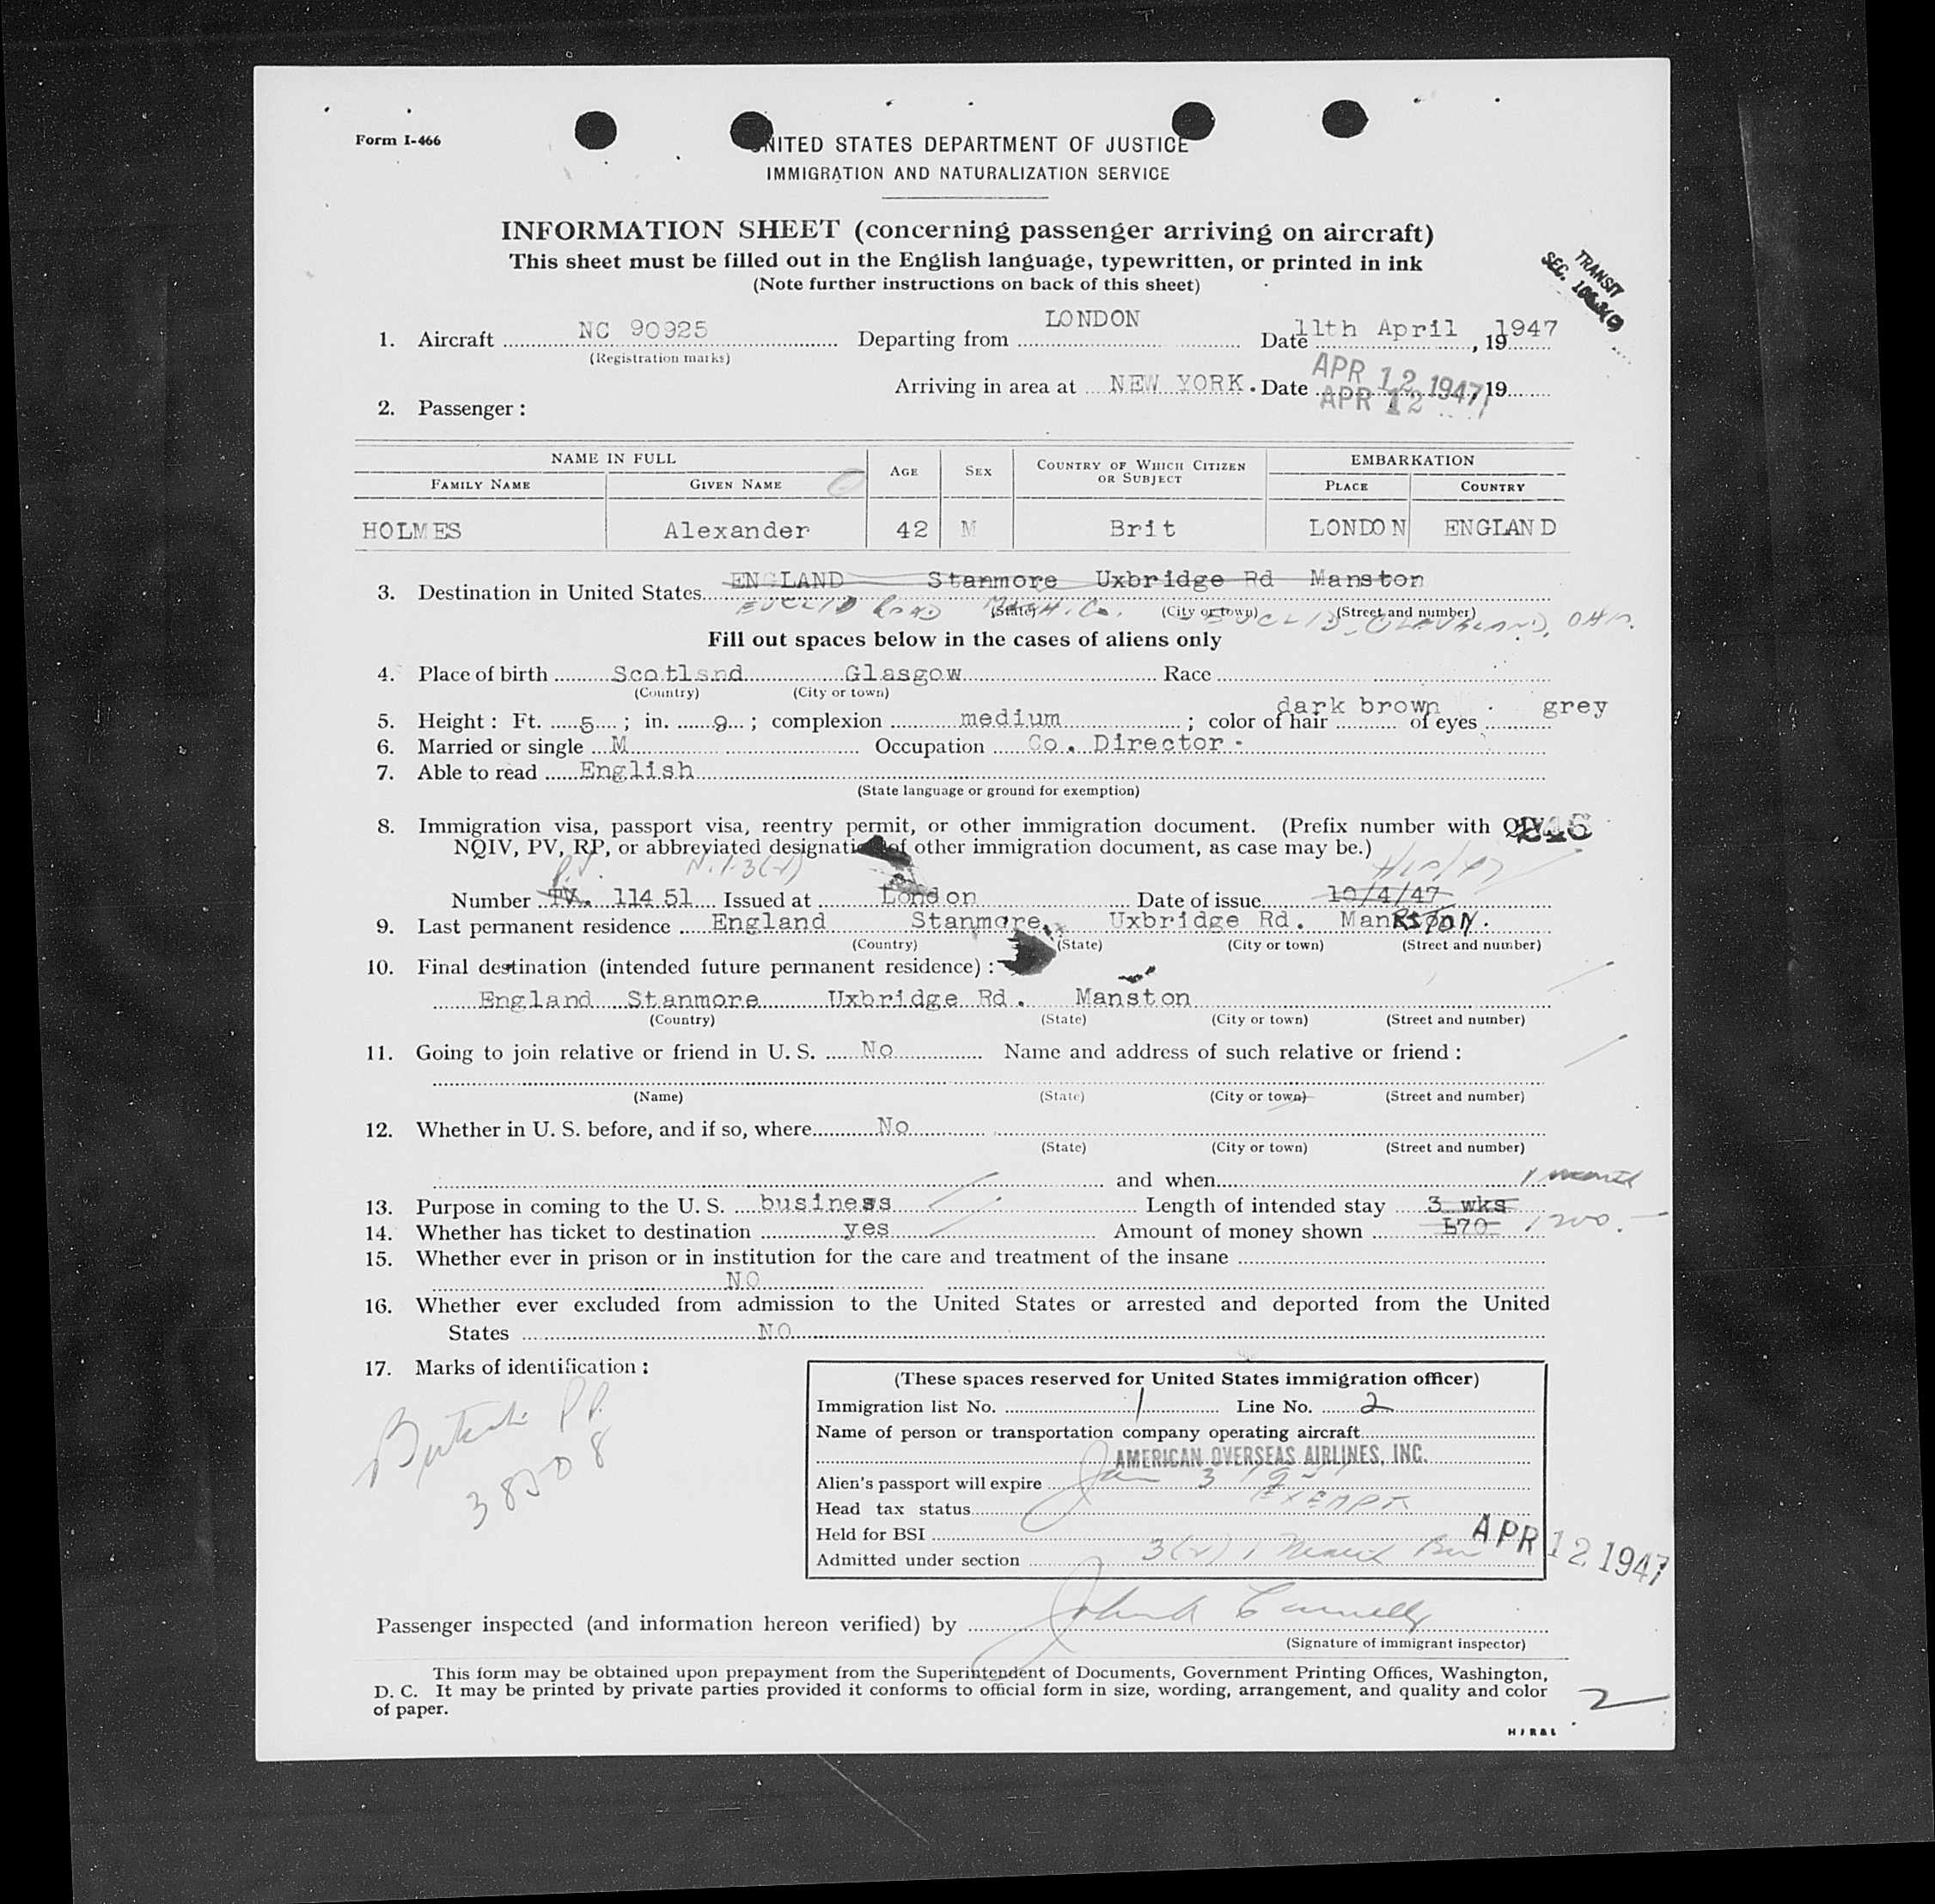 Form I-466
UNITED STATES DEPARTMENT OF JUSTICE
IMMIGRATION AND NATURALIZATION SERVICE
INFORMATION SHEET (concerning passenger arriving on aircraft)
This sheet must be filled out in the English language, typewritten, or printed in ink
(Note further instructions on back of this sheet)
TRANSIT
SEC.
1. Aircraft NC 90925 Departing from LONDON Date 11th April, 19 1947
(Registration marks)
Arriving in area at NEW YORK. Date APR 12 1947, 19
APR 12
2. Passenger:
NAME IN FULL AGE SEX COUNTRY OF WHICH CITIZEN OR SUBJECT EMBARKATION
FAMILY NAME GIVEN NAME PLACE COUNTRY
HOLMES Alexander 42 M Brit LONDON ENGLAND
3. Destination in United States ENGLAND Stanmore Uxbridge Rd Manston
EUCLID ROAD EUCLID CLEVELAND,
(State) (City or town) (Street and number)
Fill out spaces below in the cases of aliens only
4. Place of birth Scotland Glasgow Race
(Country) (City or town)
5. Height: Ft. 5; in. 9; complexion medium; color of hair dark brown of eyes grey
6. Married or single M Occupation Co. Director.
7. Able to read English
(State language or ground for exemption)
8. Immigration visa, passport visa, reentry permit, or other immigration document. (Prefix number with QIV,
NQIV, PV, RP, or abbreviated designation of other immigration document, as case may be.)
P.V.
Number TV. 11451 Issued at London Date of issue 10/4/47
9. Last permanent residence England Stanmore, Uxbridge Rd. Manston.
(Country) (State) (City or town) (Street and number)
10. Final destination (intended future permanent residence):
England Stanmore Uxbridge Rd. Manston
(Country) (State) (City or town) (Street and number)
11. Going to join relative or friend in U. S. No Name and address of such relative or friend:
(Name) (State) (City or town) (Street and number)
12. Whether in U. S. before, and if so, where No
(State) (City or town) (Street and number)
and when 1 month
13. Purpose in coming to the U. S. business Length of intended stay 3 wks
14. Whether has ticket to destination yes Amount of money shown 1200.
15. Whether ever in prison or in institution for the care and treatment of the insane
NO
16. Whether ever excluded from admission to the United States or arrested and deported from the United
States NO
17. Marks of identification:
British PP.
(These spaces reserved for United States immigration officer)
Immigration list No. 1 Line No. 2
Name of person or transportation company operating aircraft
AMERICAN OVERSEAS AIRLINES, INC.
Alien's passport will expire Jan 3
Head tax status EXEMPT
Held for BSI
Admitted under section 3(2) 1 APR 12 1947
Passenger inspected (and information hereon verified) by
(Signature of immigrant inspector)
This form may be obtained upon prepayment from the Superintendent of Documents, Government Printing Offices, Washington,
D. C. It may be printed by private parties provided it conforms to official form in size, wording, arrangement, and quality and color
of paper.
2